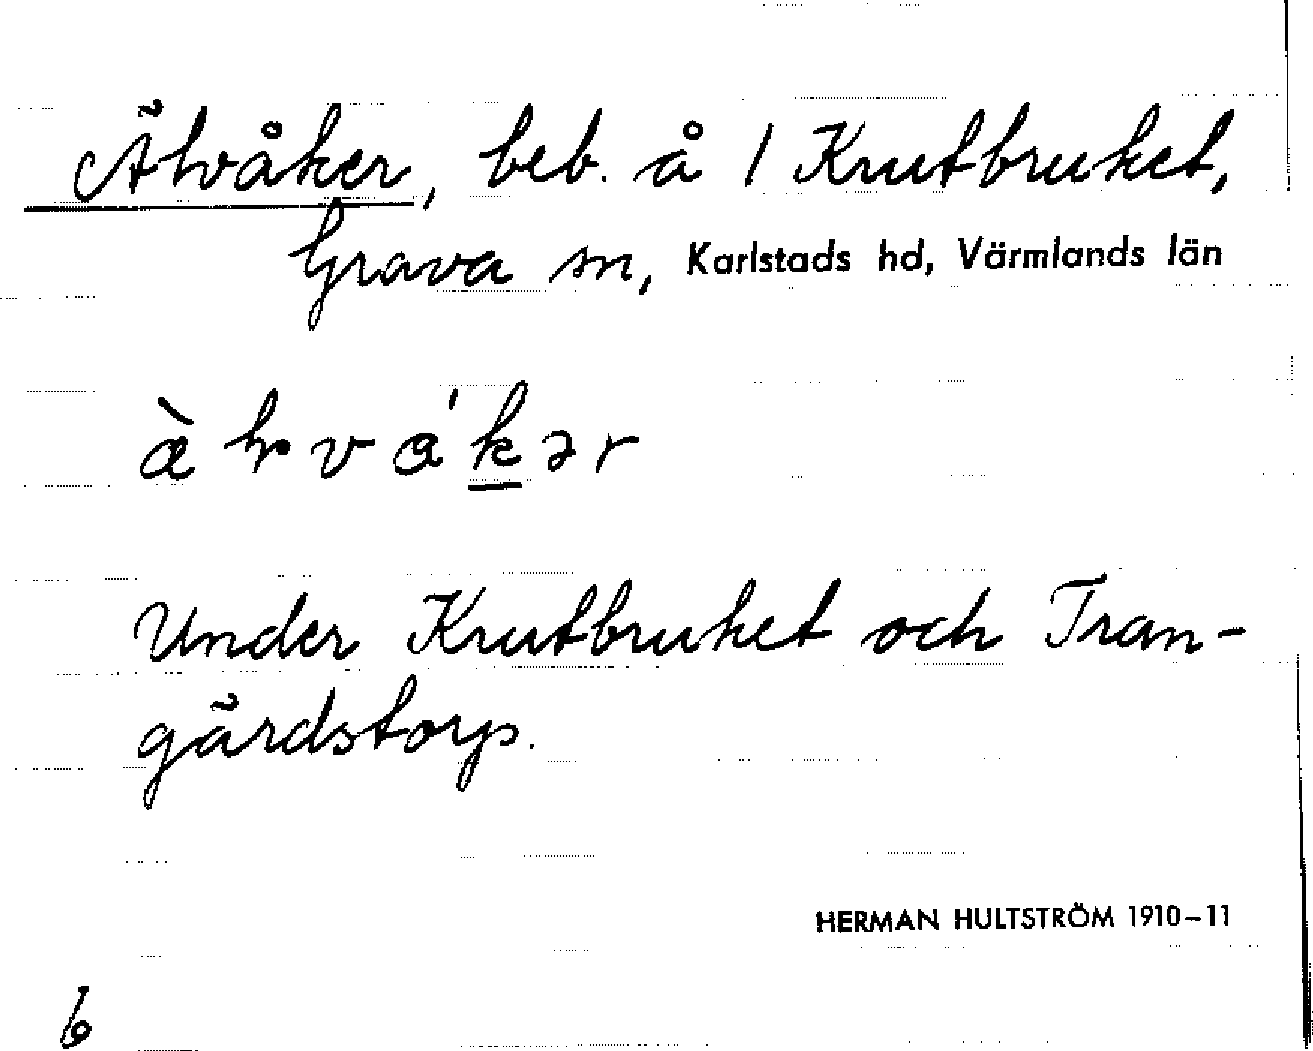 Älvåker, beb. å 1 Krutbruket,
Grava sn, Karlstads hd, Värmlands län
Under Krutbruket och Tran-
gärdstorp.
HERMAN HULTSTRÖM 1910-11
b